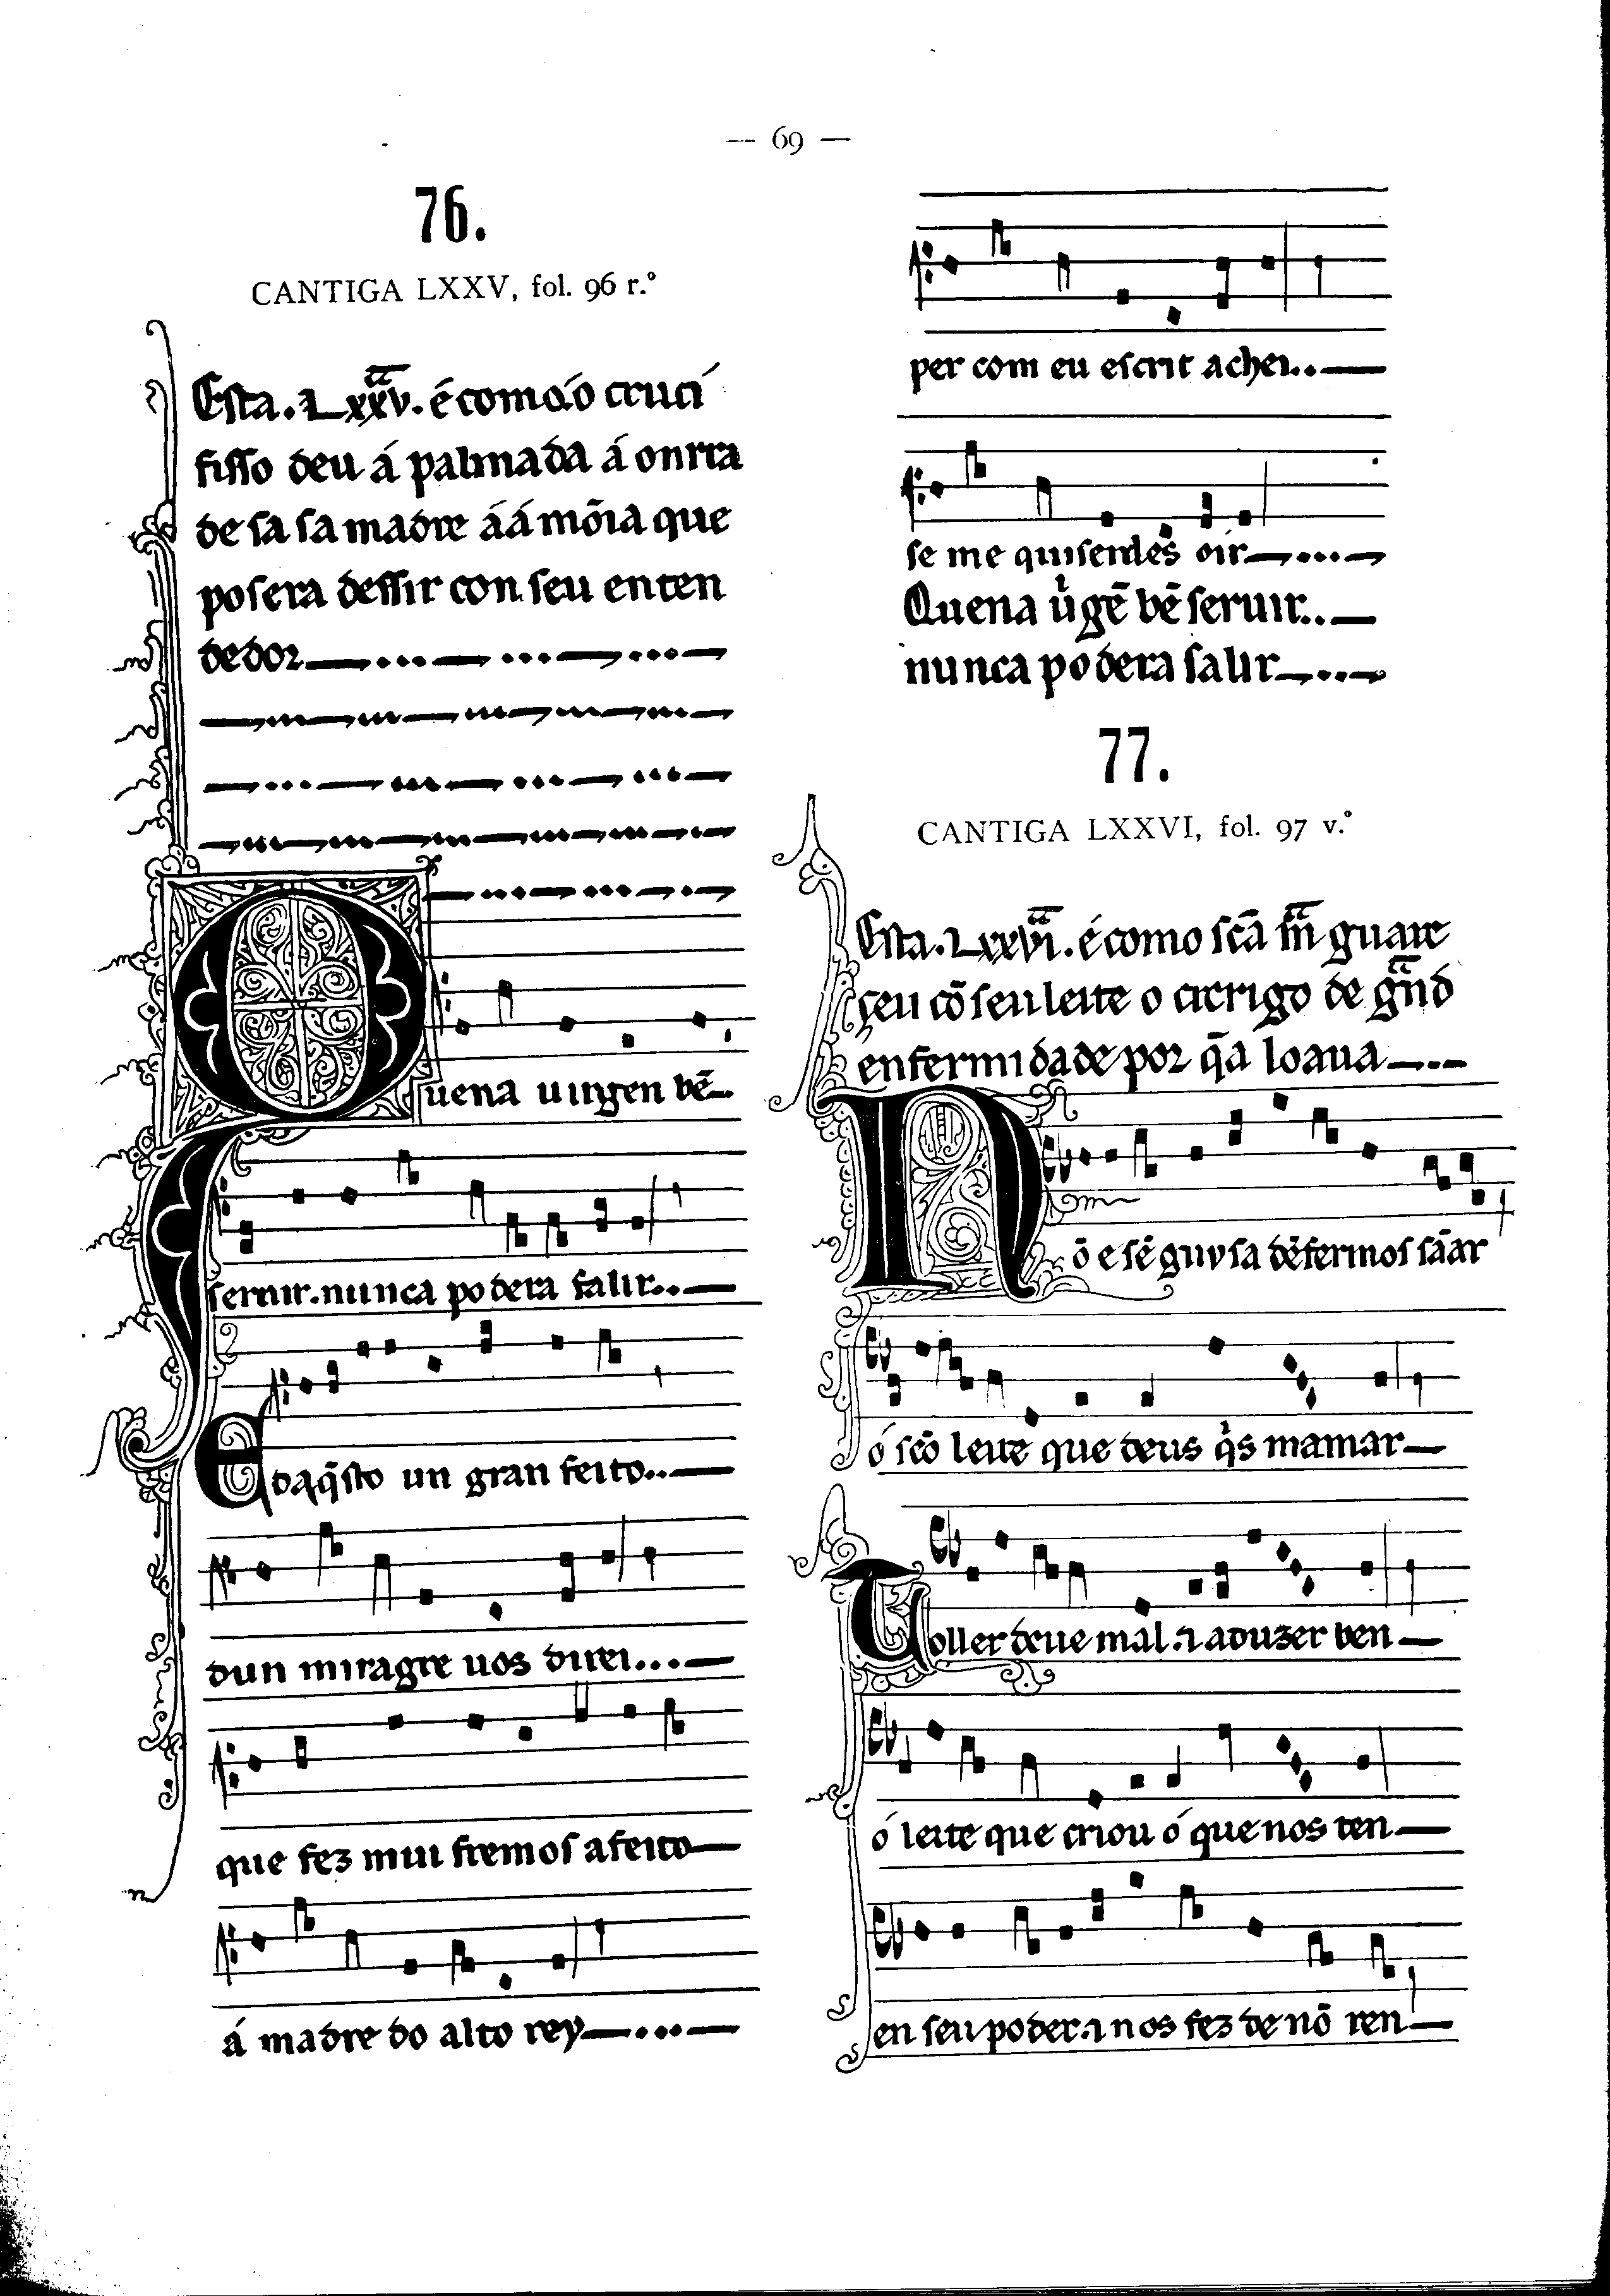 — 69 —
76.
CANTIGA LXXV, fol. 96 r.º
Esta. Lxxv. é como ó cruci
fisso deu á palmada á onrra
de sa sa madre á á mōia que
posera dessir con seu enten
dedor
Quena uirgen bē
seruir. nunca podera falir..
E daq̄sto un gran feito..
dun miragre uos direi...
que fez mui fremos a feito
á madre do alto rey
per com eu escrit achei..
se me quiserdes oir
Quena u̓gē bē seruir..
nunca podera falir
77.
CANTIGA LXXVI, fol. 97 v.º
Esta. Lxxvi. é como sc̄a m̄ guare
çeu cō seu leite o crerigo de g̃nd
enfermidade por q̄a loaua
Nō e sē guysa dēfermos sāar
ó sc̄o leite que deus q̓s mamar
Toller deue mal. ⁊ aduzer ben
ó leite que criou ó que nos ten
en seu poder. ⁊ nos fez de nō ren